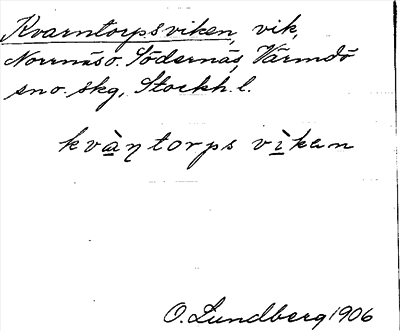 Kvarntorpsviken, vik,
Norrnäs o. Södernäs, Värmdö
sn o. skg, Stockh. l.
kvàηtorps vìken
O. Lundberg 1906